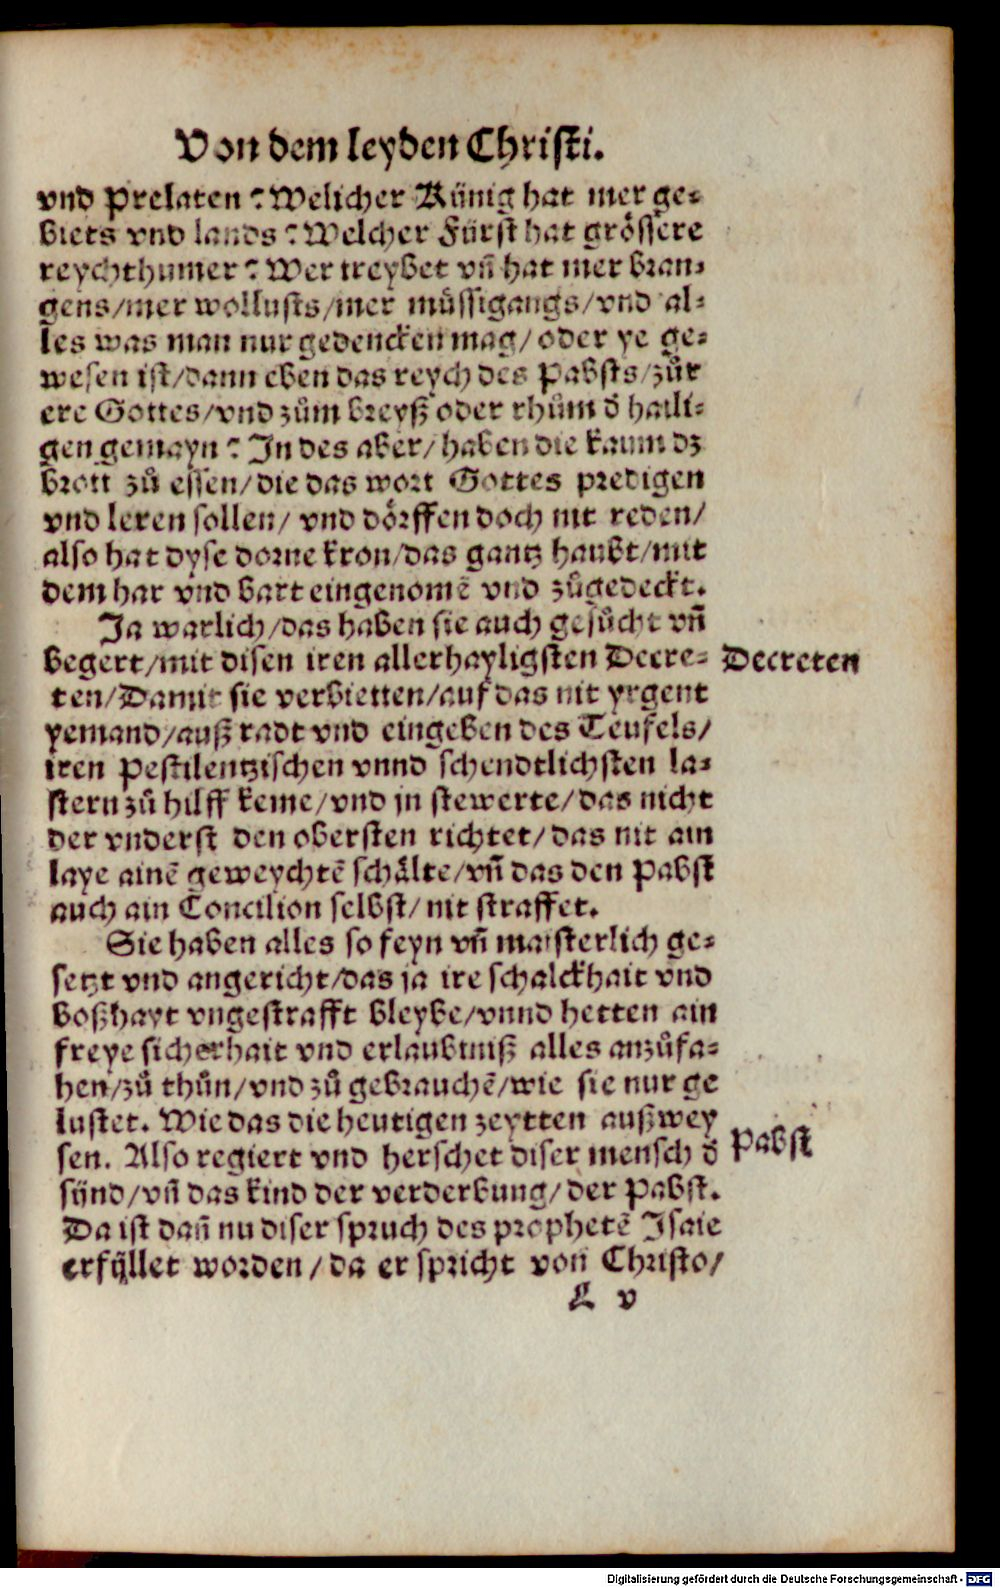 Von dem leyden Christi.
vnd Prelaten? Welicher Künig hat mer ge-
biets vnd lands? Welcher Fürst hat grössere
reychthumer? Wer treybet vñ hat mer bran-
gens/mer wollusts/mer müssigangs/vnd al-
les was man nur gedencken mag/oder ye ge-
wesen ist/dann eben das reych des Pabsts/zůr
ere Gottes/vnd zům breyß oder rhům d̕ haili-
gen gemayn? In des aber/haben die kaum dz
brott zů essen/die das wort Gottes predigen
vnd leren sollen/ vnd dörffen doch nit reden/
also hat dyse dorne kron/das gantz haubt/mit
dem har vnd bart eingenomē vnd zůgedeckt.
Ja warlich/das haben sie auch gesůcht vñ
begert/mit disen iren allerhayligsten Decre-
Decreten
ten/Damit sie verbietten/auf das nit yrgent
yemand/auß radt vnd eingeben des Teufels/
iren Pestilentzischen vnnd schendtlichsten la-
stern zů hilff keme/vnd jn stewerte/das nicht
der vnderst den obersten richtet/das nit ain
laye ainē geweychtē schälte/vñ das den Pabst
auch ain Concilion selbst/nit straffet.
Sie haben alles so feyn vñ maisterlich ge-
setzt vnd angericht/das ja ire schalckhait vnd
boßhayt vngestrafft bleybe/vnnd hetten ain
freye sicherhait vnd erlaubtniß alles anzůfa-
hen/zů thůn/vnd zů gebrauchē/wie sie nur ge
lustet. Wie das die heutigen zeytten außwey
sen. Also regiert vnd herschet diser mensch d̕
Pabst
sünd/vñ das kind der verderbung/der Pabst.
Da ist dañ nu diser spruch des prophetē Isaie
erfüllet worden/da er spricht von Christo/
L v
Digitalisierung gefördert durch die Deutsche Forschungsgemeinschaft - DFG